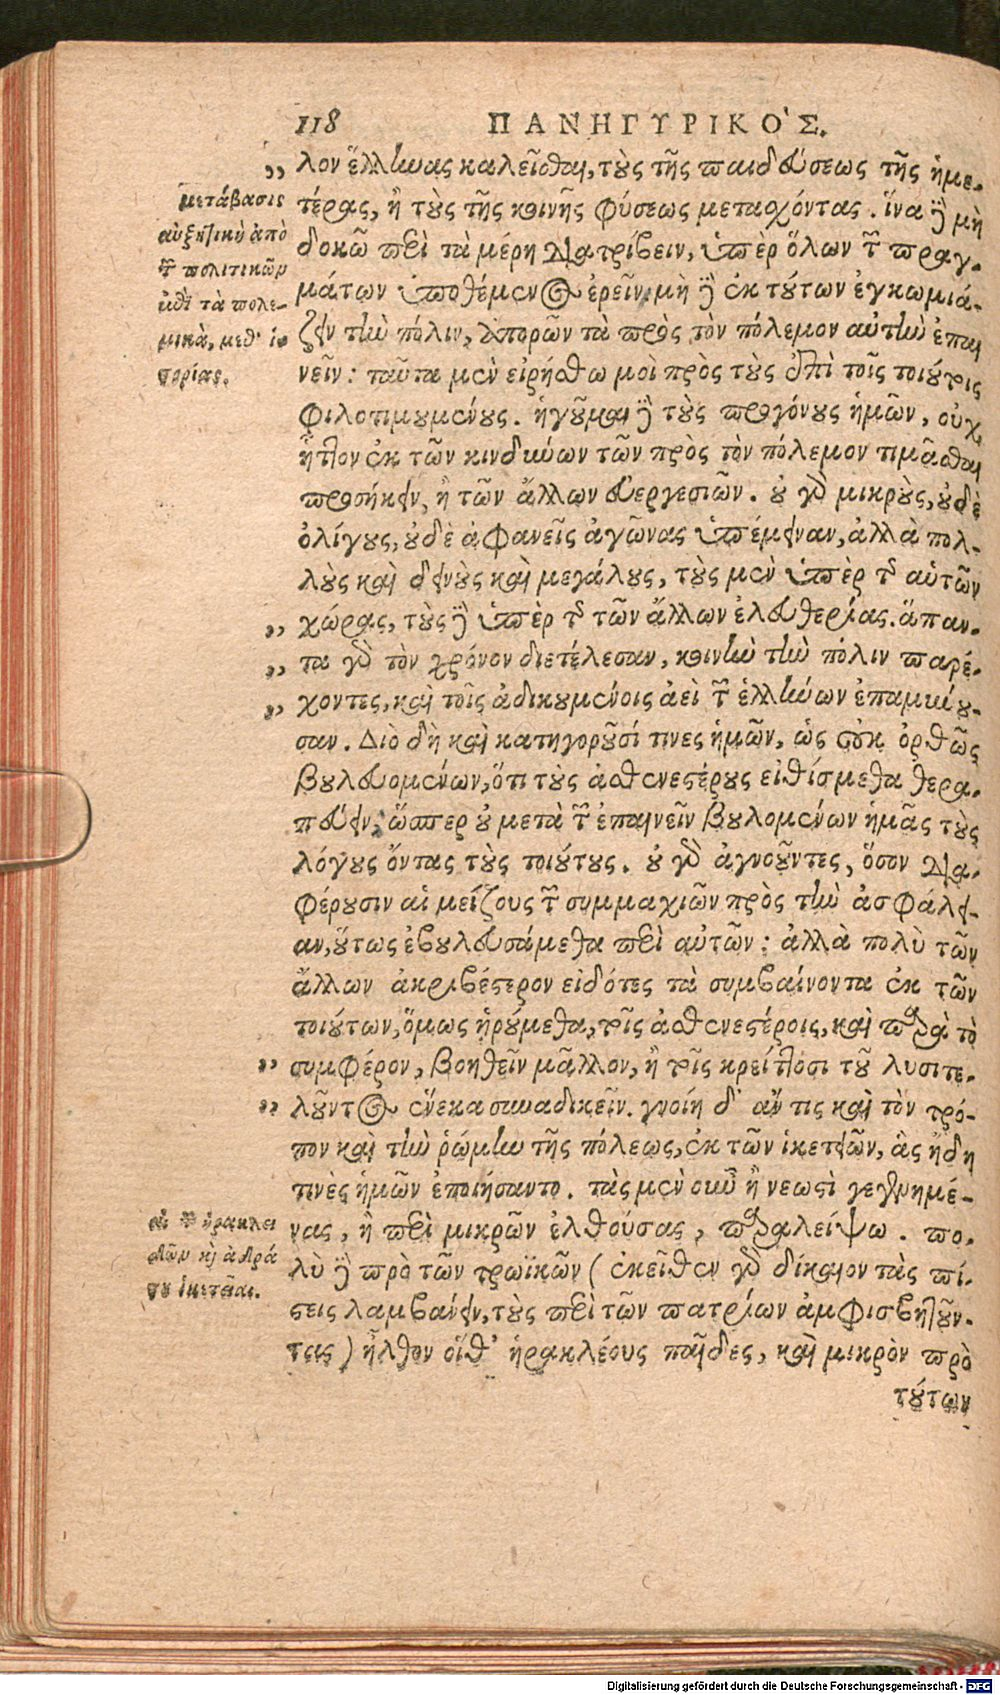 118 ΠΑΝΗΓΥΡΙΚΟ'Σ.
„ λον ἕλληνας καλεῖσθαι, τοὺς τῆς παιδεύσεως τῆς ἡμε-
μετάβασις τέρας, ἢ τοὺς τῆς κοινῆς φύσεως μετασχόντας. ἵνα δὲ μὴ
αὐξητικὴ ἀπὸ δοκῶ περὶ τὰ μέρη διατρίβειν, ὑπὲρ ὅλων τῶν πραγ-
τῶν πολιτικῶν μάτων ὑποθέμενος ἐρεῖν, μὴ δὲ ἐκ τούτων ἐγκωμιά-
ἐπὶ τὰ πολε- ζειν τὴν πόλιν, ἀπορῶν τὰ πρὸς τὸν πόλεμον αὐτὴν ἐπαι
μικὰ, μεθ' ἱ νεῖν: ταῦτα μὲν εἰρήσθω μοὶ πρὸς τοὺς ἐπὶ τοῖς τοιούτοις
στορίας. φιλοτιμουμένους. ἡγοῦμαι δὲ τοὺς προγόνους ἡμῶν, οὐχ
ἧττον ἐκ τῶν κινδύνων τῶν πρὸς τὸν πόλεμον τιμᾶσθαι
προσήκειν, ἢ τῶν ἄλλων εὐεργεσιῶν. οὐ γὰρ μικροὺς, οὐδὲ
ὀλίγους, οὐδὲ ἀφανεῖς ἀγῶνας ὑπέμειναν, ἀλλὰ πολ-
λοὺς καὶ δεινοὺς καὶ μεγάλους, τοὺς μὲν ὑπὲρ τῆς αὑτῶν
„ χώρας, τοὺς δὲ ὑπὲρ τῆς τῶν ἄλλων ἐλευθερίας. ἅπαν-
„ τα γὰρ τὸν χρόνον διετέλεσαν, κοινὴν τὴν πόλιν παρέ-
„ χοντες, καὶ τοῖς ἀδικουμένοις ἀεὶ τῶν ἑλλήνων ἐπαμύνου-
σαν. Διὸ δὴ καὶ κατηγοροῦσί τινες ἡμῶν, ὡς οὐκ ὀρθῶς
βουλευομένων, ὅτι τοὺς ἀσθενεστέρους εἰθίσμεθα θερα-
πεύειν, ὥσπερ οὐ μετὰ τῶν ἐπαινεῖν βουλομένων ἡμᾶς τοὺς
λόγους ὄντας τοὺς τοιούτους. οὐ γὰρ ἀγνοοῦντες, ὅσον δια-
φέρουσιν αἱ μείζους τῶν συμμαχιῶν πρὸς τὴν ἀσφάλει-
αν, οὕτως ἐβουλευσάμεθα περὶ αὐτῶν: ἀλλὰ πολὺ τῶν
ἄλλων ἀκριβέστερον εἰδότες τὰ συμβαίνοντα ἐκ τῶν
τοιούτων, ὅμως ᾑρούμεθα, τοῖς ἀσθενεστέροις, καὶ παρὰ τὸ
„ συμφέρον, βοηθεῖν μᾶλλον, ἢ τοῖς κρείττοσι τοῦ λυσιτε-
„ λοῦντος ἕνεκα συναδικεῖν. γνοίη δ' ἄν τις καὶ τὸν τρό-
πον καὶ τὴν ῥώμην τῆς πόλεως, ἐκ τῶν ἱκετειῶν, ἃς ἤδη
τινὲς ἡμῶν ἐποιήσαντο. τὰς μὲν οὖν ἢ νεωστὶ γεγενημέ-
αἱ τῶν ἡρακλει νας, ἢ περὶ μικρῶν ἐλθούσας, παραλείψω. πο-
δῶν κὶ ἀδρά λὺ δὲ πρὸ τῶν τρωϊκῶν (ἐκεῖθεν γὰρ δίκαιον τὰς πί-
στου ἱκετεῖαι. στεις λαμβάνειν, τοὺς περὶ τῶν πατρίων ἀμφισβητοῦν-
τας) ἦλθον οἵθ' ἡρακλέους παῖδες, καὶ μικρὸν πρὸ
τούτων
Digitalisierung gefördert durch die Deutsche Forschungsgemeinschaft - DFG